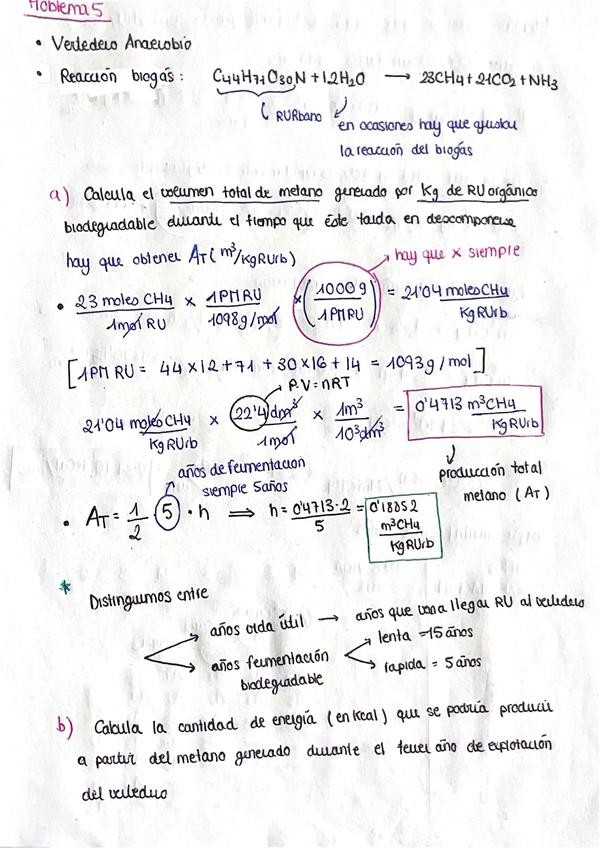 Problema 5
• Vertedero Anaerobio
• Reacción biogás: C44H71O30N + 12H2O → 23CH4 + 21CO2 + NH3
RURbano
en ocasiones hay que ajustar
la reacción del biogás
a) Calcula el volumen total de metano generado por Kg de RU orgánico
biodegradable durante el tiempo que éste tarda en descomponerse
hay que obtener AT (m³/KgRUrb)
hay que x siempre
• 23 moles CH4 / 1mol RU × 1PM RU / 1098g/mol × (1000g / 1PM RU) = 21'04 moles CH4 / Kg RUrb
[1PM RU = 44×12 + 71 + 30×16 + 14 = 1093g/mol]
P.V = nRT
21'04 moles CH4 / Kg RUrb × 22'4 dm³ / 1mol × 1m³ / 10³dm³ = 0'4713 m³CH4 / Kg RUrb
años de fermentación
siempre 5años
producción total
metano (AT)
• AT = 1/2 · 5 · h ⟹ h = 0'4713·2 / 5 = 0'18852 m³CH4 / Kg RUrb
* Distinguimos entre
años vida útil → años que van a llegar RU al vertedero
años fermentación
biodegradable
lenta = 15 años
rapida = 5 años
b) Calcula la cantidad de energía (en Kcal) que se podría producir
a partir del metano generado durante el tercer año de explotación
del vertedero